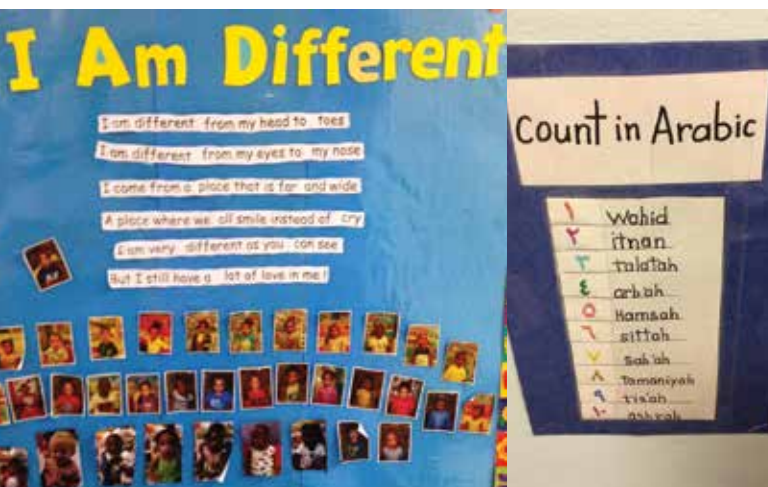 I Am Different
I am different from my head to toes
I am different from my eyes to my nose
I come from a place that is far and wide
A place where we all smile instead of cry
I am very different as you can see
But I still have a lot of love in me!
Count in Arabic
١ Wahid
٢ itnan
٣ talatah
٤ arb'ah
٥ Hamsah
٦ sittah
٧ sab'ah
٨ Tamaniyah
٩ tis'ah
١٠ ashrah